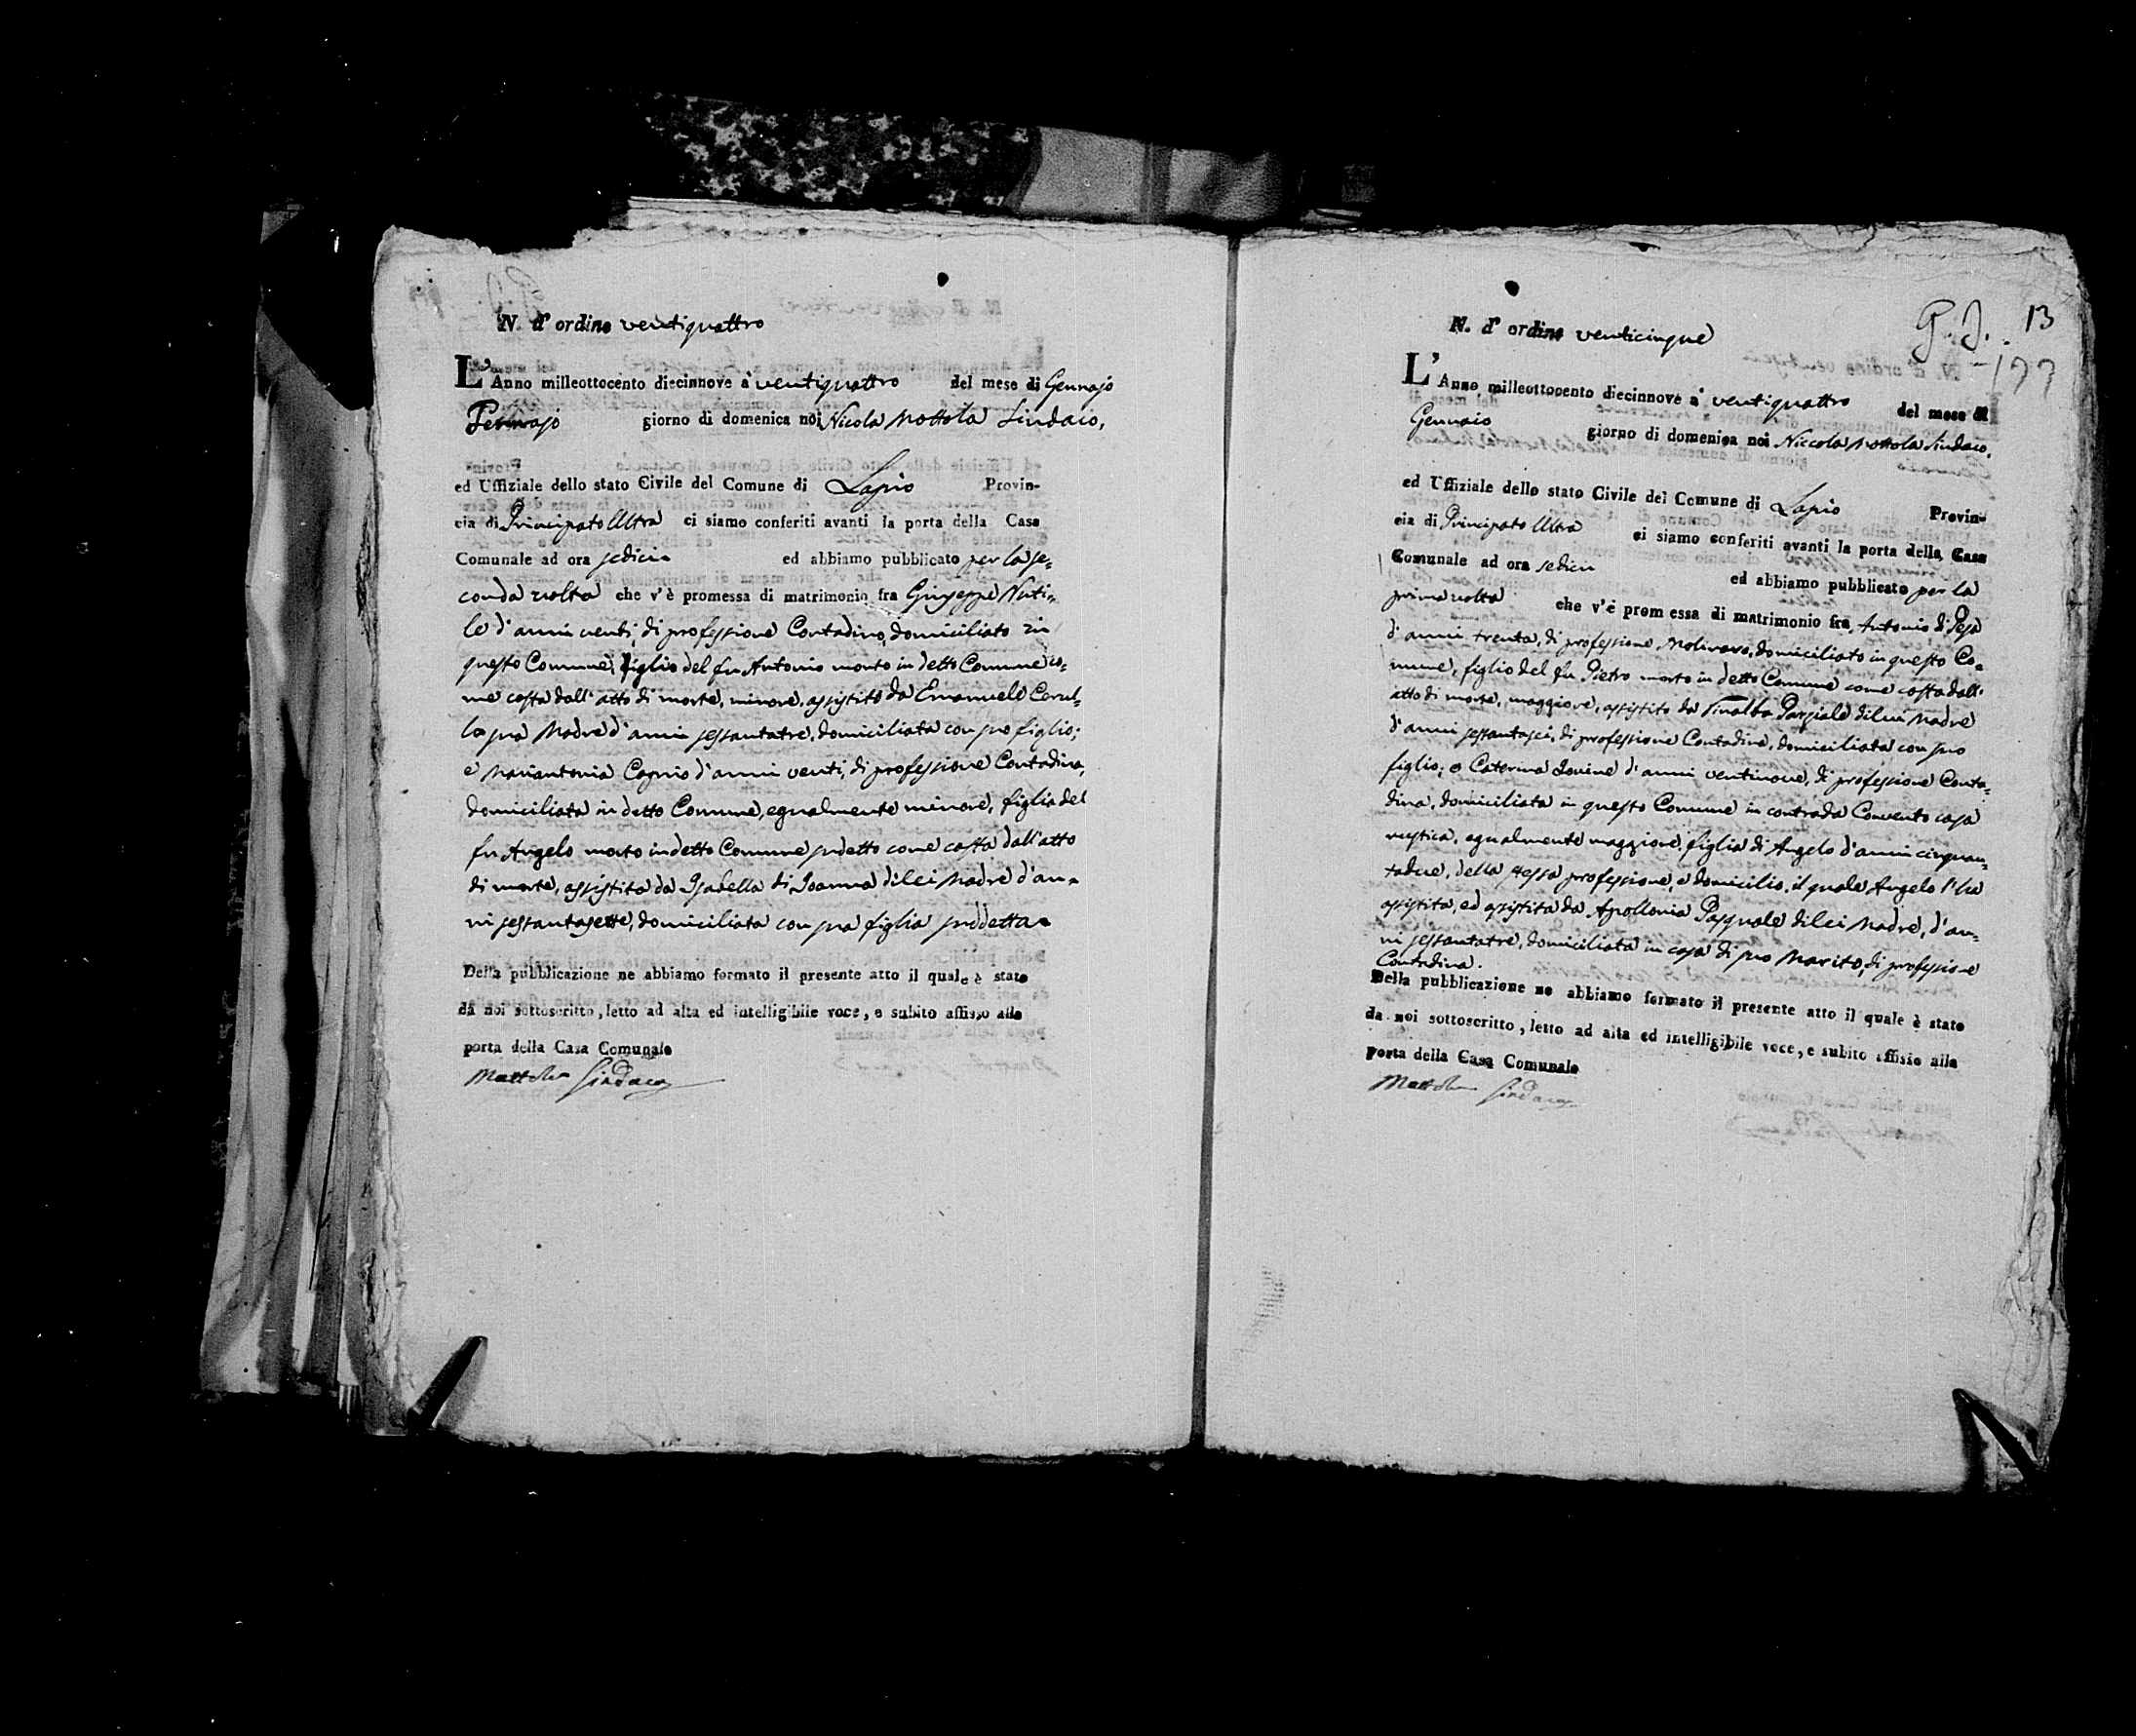 N. d'ordine ventiquattro
L'Anno milleottocento diecinnove a' ventiquattro del mese di Gennajo
Gennajo giorno di domenica noi Nicola Mottola Sindaco,
ed Uffiziale dello stato Civile del Comune di Lapio Provin-
cia di Principato Ultra ci siamo conferiti avanti la porta della Casa
Comunale ad ora sedici ed abbiamo pubblicato per la se-
conda volta che v'è promessa di matrimonio fra Giuseppe Nuti-
le d'anni venti, di professione Contadino, domiciliato in
questo Comune, figlio del fu Antonio morto in detto Comune co-
me costa dall'atto di morte, minore, assistito da Emanuele Cerul-
lo sua Madre d'anni sessantatre, domiciliata con suo figlio;
e Mariantonia Cagnio d'anni venti, di professione Contadina,
domiciliata in detto Comune, egualmente minore, figlia del
fu Angelo morto in detto Comune sudetto come costa dall'atto
di morte, assistita da Isabella di Joanna di lei Madre d'an-
ni sessantasette, domiciliata con sua figlia suddetta
Della pubblicazione ne abbiamo formato il presente atto il quale è stato
da noi sottoscritto, letto ad alta ed intelligibile voce, e subito affisso alla
porta della Casa Comunale
Mottola Sindaco
G. J. 13
N. d'ordine venticinque
197
L'Anno milleottocento diecinnove a' ventiquattro del mese di
Gennaio giorno di domenica noi Niccola Mottola Sindaco,
ed Uffiziale dello stato Civile del Comune di Lapio Provin-
cia di Principato Ultra ci siamo conferiti avanti la porta della Casa
Comunale ad ora sedici ed abbiamo pubblicato per la
prima volta che v'è promessa di matrimonio fra Antonio di Pesa
d'anni trenta, di professione Molinaro, domiciliato in questo Co-
mune, figlio del fu Pietro morto in detto Comune come costa dall'
atto di morte, maggiore, assistito da Finalba Parziale di lui Madre
d'anni sessantasei, di professione Contadina, domiciliata con suo
figlio; e Caterina Iovine d'anni ventinove, di professione Conta-
dina, domiciliata in questo Comune in contrada Convento casa
rustica, egualmente maggiore, figlia di Angelo d'anni cinquan-
tadue, della stessa professione, e domicilio, il quale Angelo l'ha
assistita, ed assistita da Apollonia Pasquale di lei Madre, d'an-
ni sessantatre, domiciliata in casa di suo Marito, di professione
Contadina.
Della pubblicazione ne abbiamo formato il presente atto il quale è stato
da noi sottoscritto, letto ad alta ed intelligibile voce, e subito affisso alla
porta della Casa Comunale
Mottola Sindaco